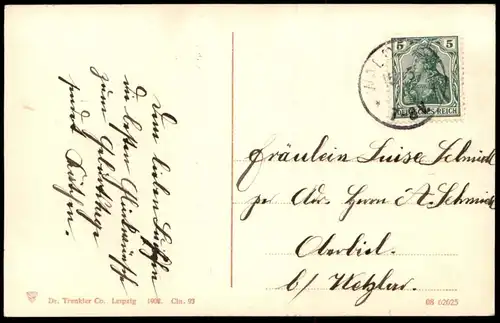 Vom lieben
die besten Glückwünsche
zum Geburtstage
sendet
5 5
DEUTSCHES REICH
Fräulein Luise Schmidt
pr. Adr. Herrn A. Schmidt
Oberbiel
b/ Wetzlar.
Dr. Trenkler Co. Leipzig 1907. Cln. 93
08 62025